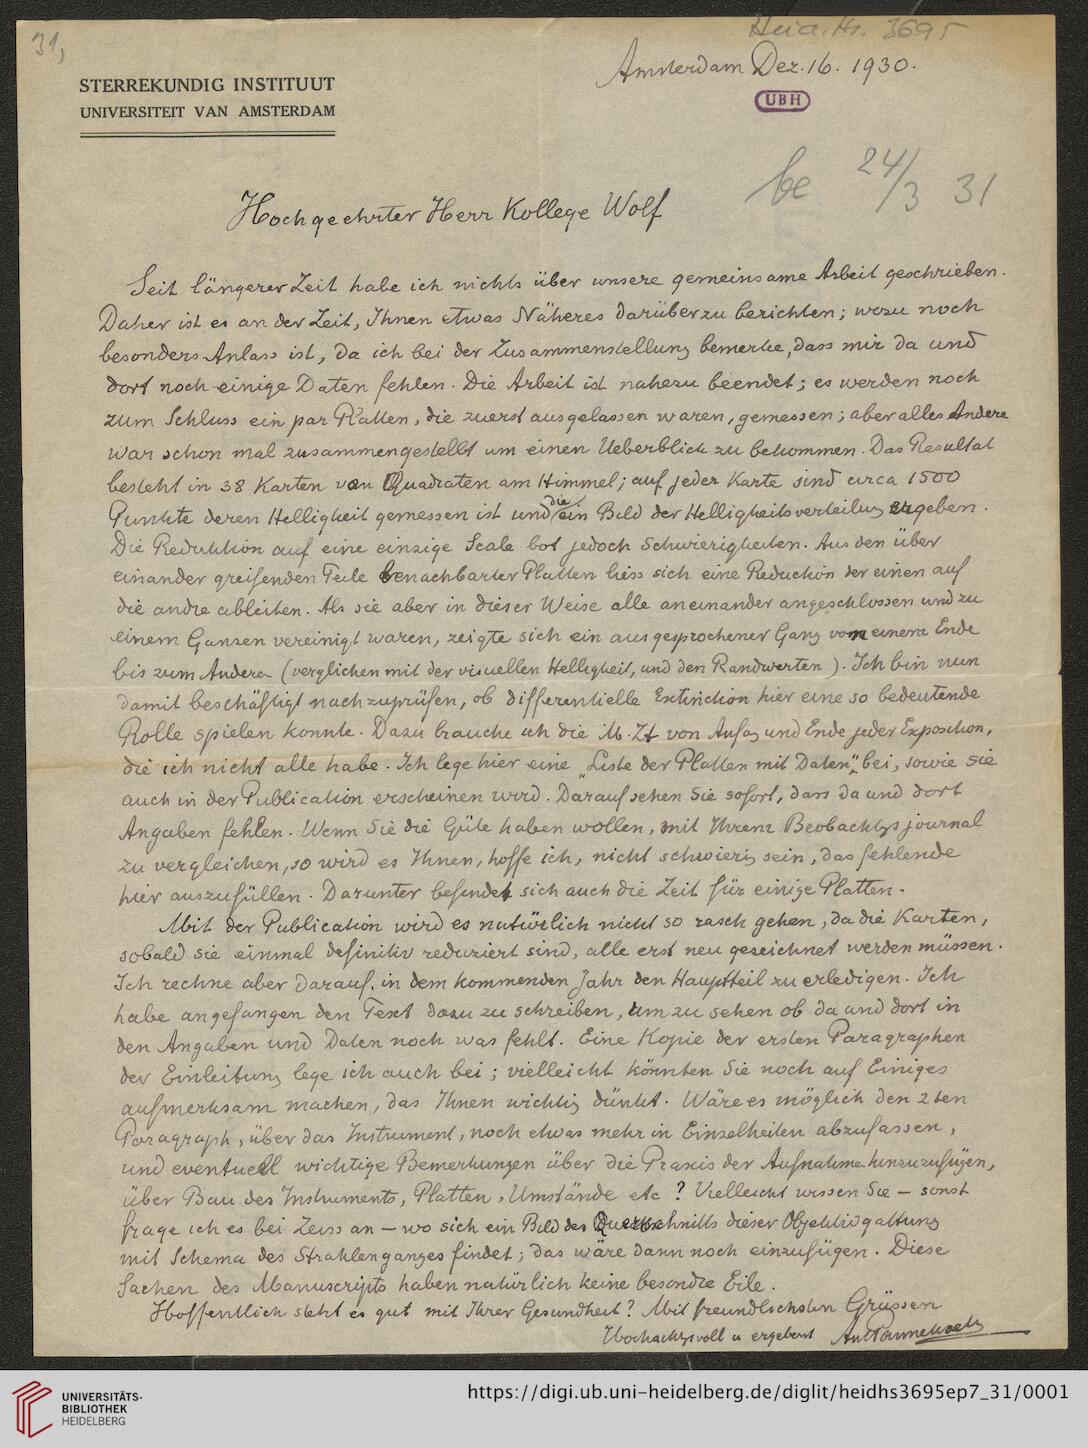 31,
Heid. Hs. 3695
Amsterdam Dez. 16. 1930.
STERREKUNDIG INSTITUUT
UNIVERSITEIT VAN AMSTERDAM
UBH
be 24/3 31
Hochgeehrter Herr Kollege Wolf
Seit längerer Zeit habe ich nichts über unsere gemeinsame Arbeit geschrieben.
Daher ist es an der Zeit, Ihnen etwas Näheres darüber zu berichten; wozu noch
besonders Anlass ist, da ich bei der Zusammenstellung bemerke, dass mir da und
dort noch einige Daten fehlen. Die Arbeit ist nahezu beendet; es werden noch
zum Schluss ein par Platten, die zuerst ausgelassen waren, gemessen; aber alles Andere
war schon mal zusammengestellt um einen Ueberblick zu bekommen. Das Resultat
besteht in 38 Karten von Quadraten am Himmel; auf jeder Karte sind circa 1500
Punkte deren Helligkeit gemessen ist und die ein Bild der Helligkeitsverteilung ergeben.
Die Reduktion auf eine einzige Scale bot jedoch Schwierigkeiten. Aus den über
einander greifenden Teile benachbarter Platten liess sich eine Reduction der einen auf
die andre ableiten. Als sie aber in dieser Weise alle aneinander angeschlossen und zu
einem Ganzen vereinigt waren, zeigte sich ein ausgesprochener Gang vom einem Ende
bis zum Anderen (verglichen mit der visuellen Helligkeit, und den Randwerten). Ich bin nun
damit beschäftigt nachzuprüfen, ob differentielle Extinction hier eine so bedeutende
Rolle spielen konnte. Dazu brauche ich die M. Zt von Anfang und Ende jeder Exposition,
die ich nicht alle habe. Ich lege hier eine „Liste der Platten mit Daten" bei, sowie sie
auch in der Publication erscheinen wird. Darauf sehen Sie sofort, dass da und dort
Angaben fehlen. Wenn Sie die Güte haben wollen, mit Ihrem Beobachtgsjournal
zu vergleichen, so wird es Ihnen, hoffe ich, nicht schwierig sein, das fehlende
hier auszufüllen. Darunter befindet sich auch die Zeit für einige Platten.
Mit der Publication wird es natürlich nicht so rasch gehen, da die Karten,
sobald sie einmal definitiv reduziert sind, alle erst neu gezeichnet werden müssen.
Ich rechne aber darauf, in dem kommenden Jahr den Hauptteil zu erledigen. Ich
habe angefangen den Text dazu zu schreiben, um zu sehen ob da und dort in
den Angaben und Daten noch was fehlt. Eine Kopie der ersten Paragraphen
der Einleitung lege ich auch bei; vielleicht könnten Sie noch auf Einiges
aufmerksam machen, das Ihnen wichtig dünkt. Wäre es möglich den 2ten
Paragraph, über das Instrument, noch etwas mehr in Einzelheiten abzufassen,
und eventuell wichtige Bemerkungen über die Praxis der Aufnahme hinzuzufügen,
über Bau des Instruments, Platten, Umstände etc? Vielleicht wissen Sie – sonst
frage ich es bei Zeiss an – wo sich ein Bild des Querschnitts dieser Objektivgattung
mit Schema des Strahlenganges findet; das wäre dann noch einzufügen. Diese
Sachen des Manuscripts haben natürlich keine besondre Eile.
Hoffentlich steht es gut mit Ihrer Gesundheit? Mit freundlichsten Grüssen
Hochachtgsvoll u ergebenst Ant Pannekoek
UNIVERSITÄTS-
BIBLIOTHEK
HEIDELBERG
https://digi.ub.uni-heidelberg.de/diglit/heidhs3695ep7_31/0001